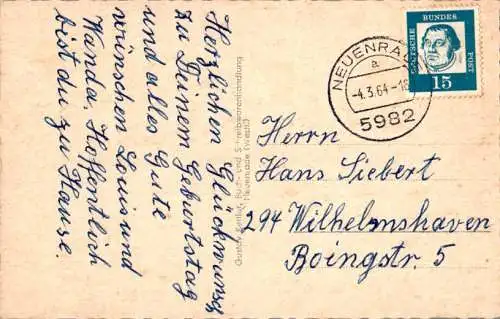 Herzlichen Glückwunsch
zu Deinem Geburtstag
und alles Gute
wünschen Louis und
Wanda. Hoffentlich
bist du zu Hause.
Buch- und Schreibwarenhandlung
Neuenrade (Westf.)
NEUENRA
a
-4.3.64-18
5982
DEUTSCHE
BUNDES
POST
15
Herrn
Hans Siebert
294 Wilhelmshaven
Boingstr. 5